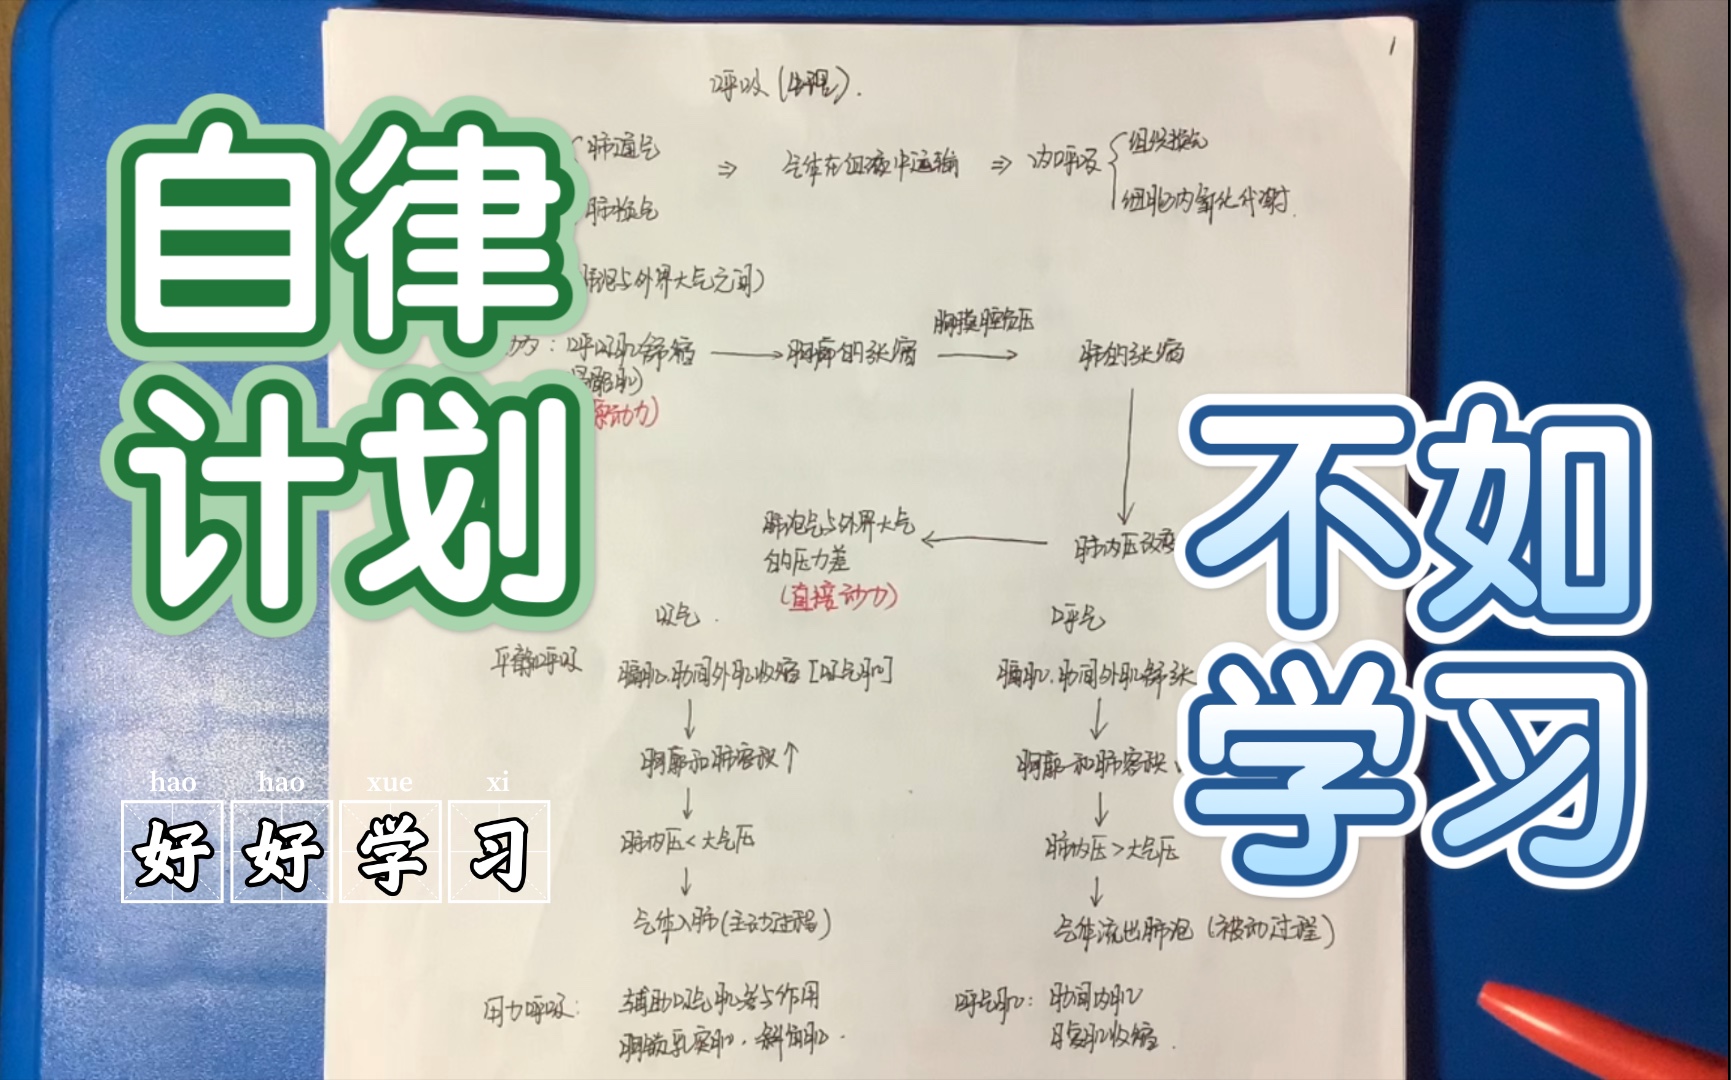 1
呼吸(生理).
肺通气
⇒ 气体在血液中运输 ⇒ 内呼吸
组织换气
肺换气
细胞内氧化代谢.
肺泡与外界大气之间)
自律
计划
胸膜腔负压
动力:呼吸肌舒缩 → 胸廓的张缩 → 肺的张缩
原动力)
不如
学习
肺泡气与外界大气
的压力差
← 肺内压改变
(直接动力)
吸气.
呼气
平静呼吸
膈肌.肋间外肌收缩[吸气肌]
膈肌.肋间外肌舒张
↓
↓
胸廓和肺容积↑
胸廓和肺容积
↓
↓
肺内压<大气压
肺内压>大气压
↓
↓
气体入肺(主动过程)
气体流出肺泡(被动过程)
hao hao xue xi
好好学习
用力呼吸:
辅助吸气肌参与作用
胸锁乳突肌.斜角肌.
呼气肌:肋间内肌
腹肌收缩.